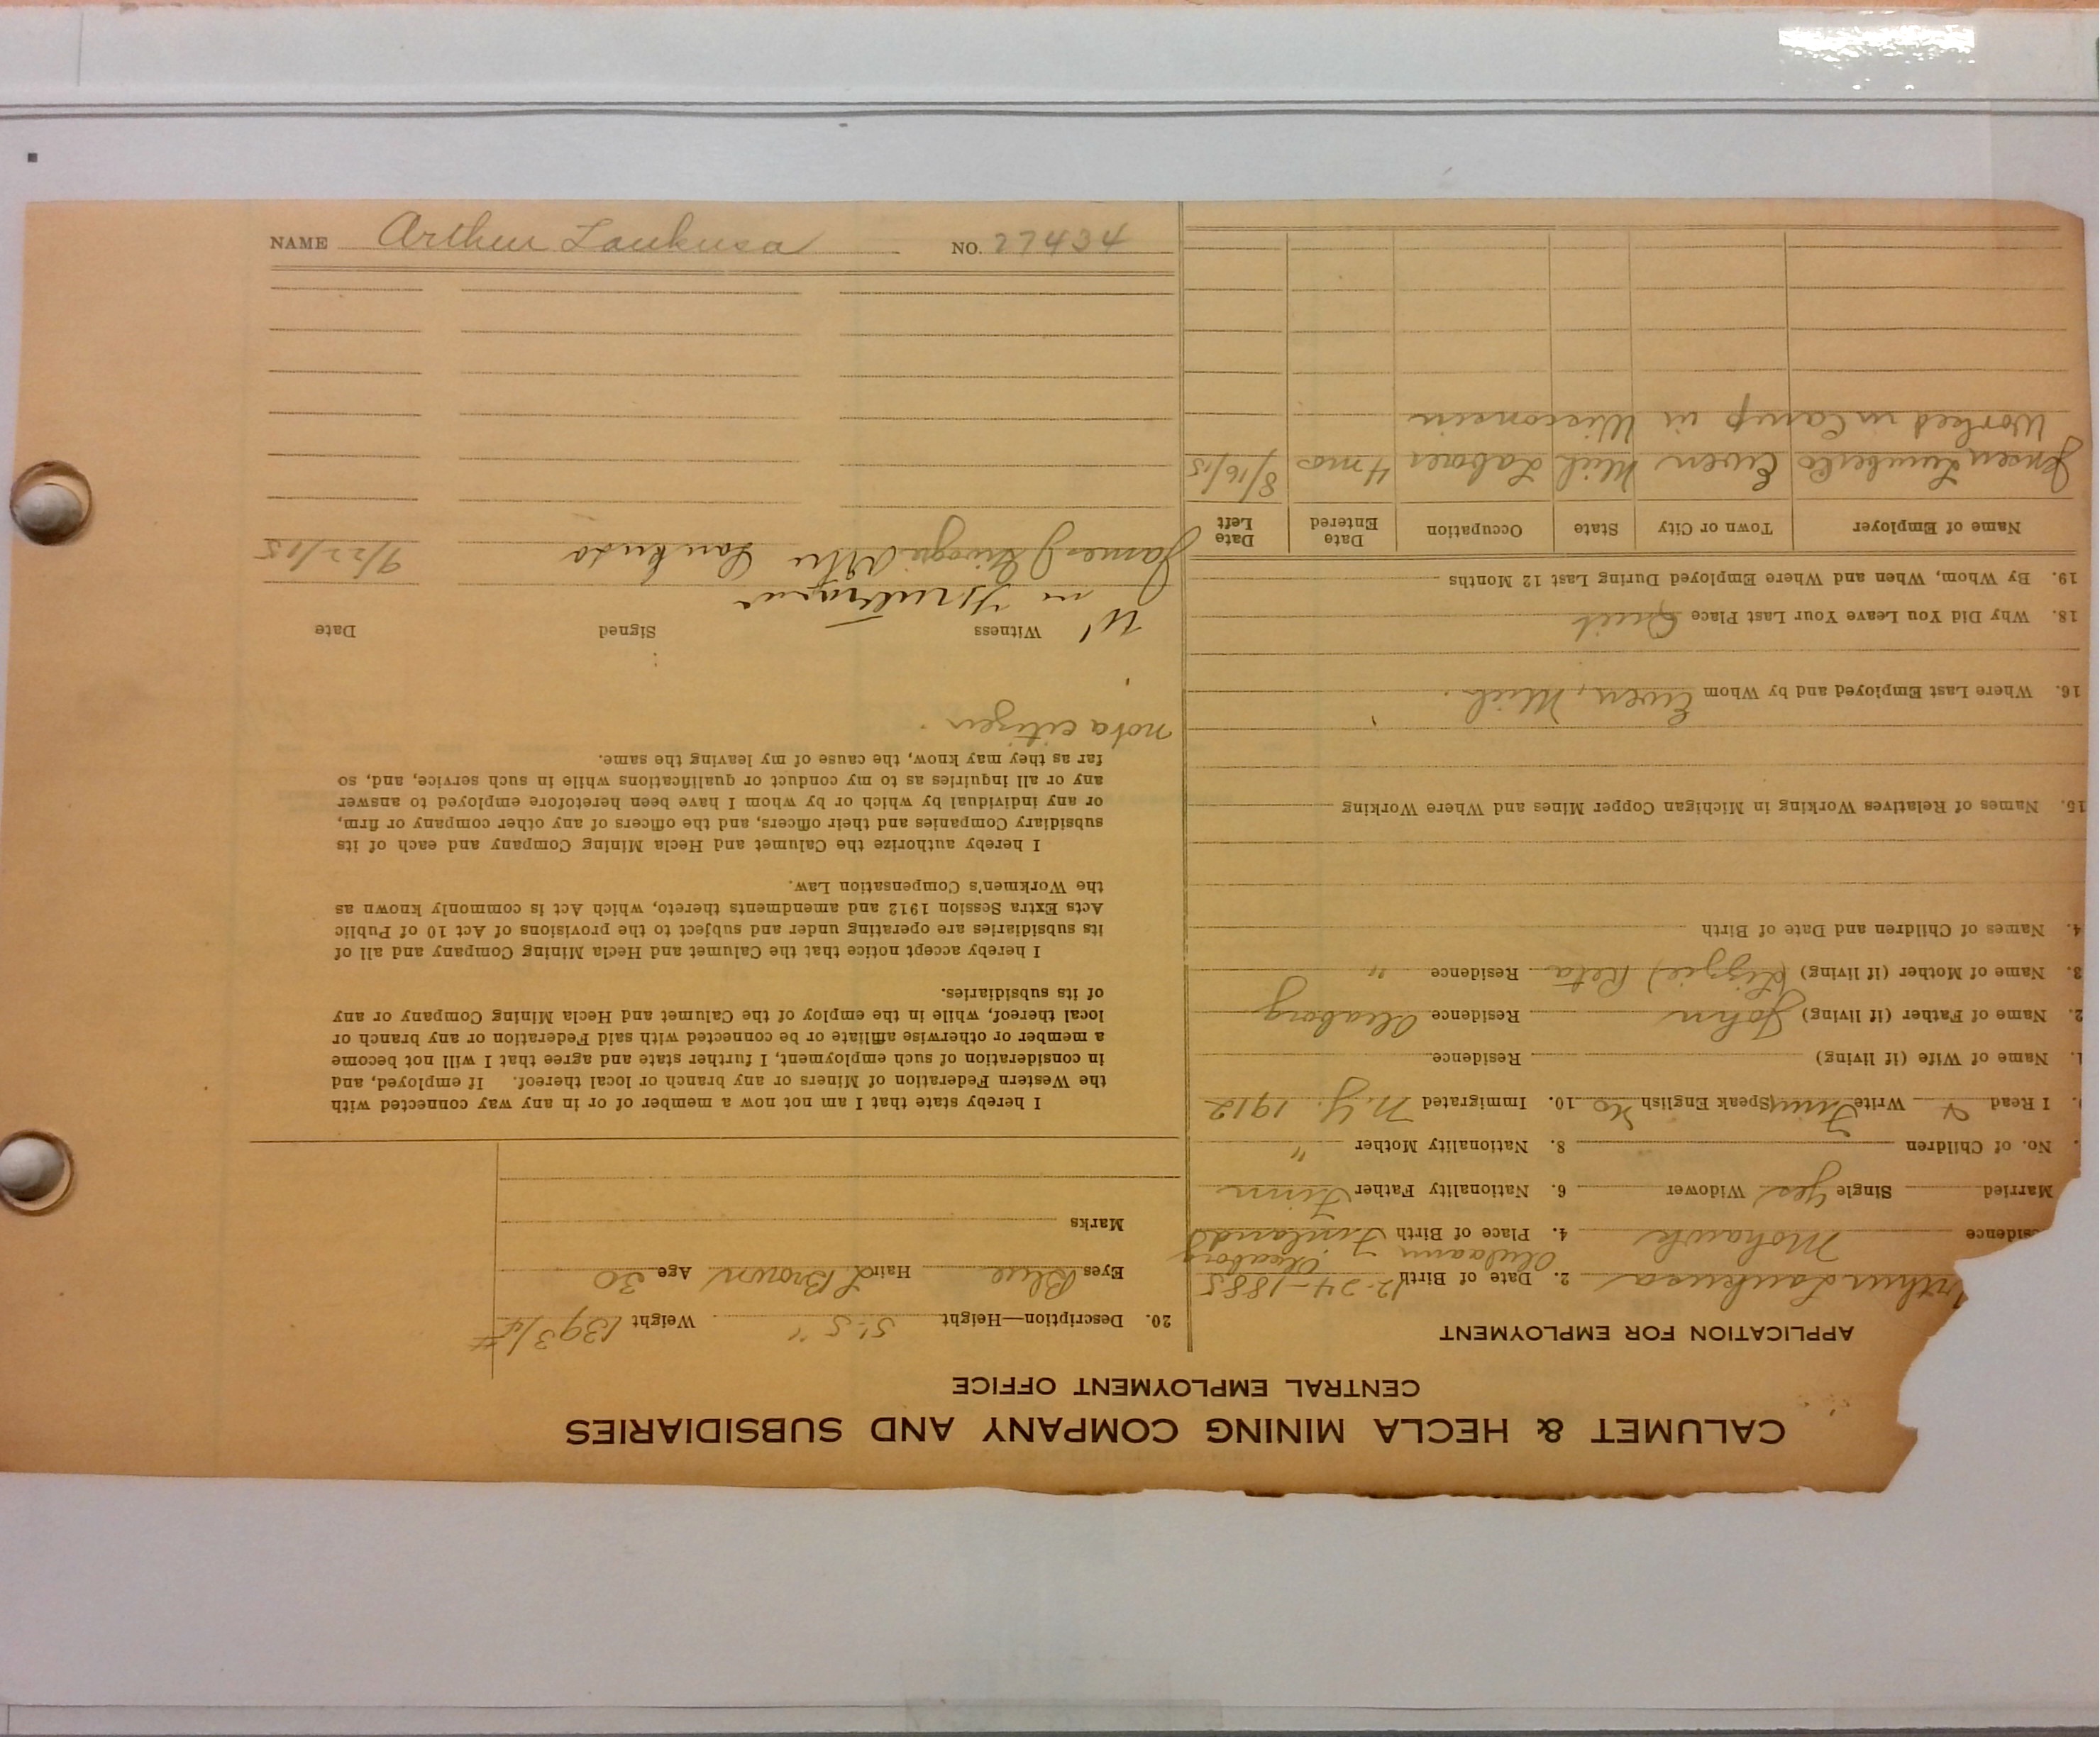 NAME Arthur Laukusa NO. 27434
CALUMET & HECLA MINING COMPANY AND SUBSIDIARIES
CENTRAL EMPLOYMENT OFFICE
APPLICATION FOR EMPLOYMENT
Arthur Laukusa 2. Date of Birth 12-24-1885
Residence Mohawk 4. Place of Birth Finland
Married Single Yes Widower 6. Nationality Father Finn
No. of Children 8. Nationality Mother "
I Read Write Finn Speak English No 10. Immigrated N.Y. 1912
1. Name of Wife (if living) Residence
2. Name of Father (if living) John Residence Uleaborg
3. Name of Mother (if living) (Lizzie) Residence "
4. Names of Children and Date of Birth
15. Names of Relatives Working in Michigan Copper Mines and Where Working
16. Where Last Employed and by Whom Ewen, Mich.
18. Why Did You Leave Your Last Place Quit
19. By Whom, When and Where Employed During Last 12 Months
Name of Employer Town or City State Occupation Date Entered Date Left
Jensen Ewen Mich Laborer 4 mos 8/16/15
Worked in Camp in Wisconsin
20. Description—Height 5'-5" Weight 139 3/4 #
Eyes Blue Hair L Brown Age 30
Marks
I hereby state that I am not now a member of or in any way connected with
the Western Federation of Miners or any branch or local thereof. If employed, and
in consideration of such employment, I further state and agree that I will not become
a member or otherwise affiliate or be connected with said Federation or any branch or
local thereof, while in the employ of the Calumet and Hecla Mining Company or any
of its subsidiaries.
I hereby accept notice that the Calumet and Hecla Mining Company and all of
its subsidiaries are operating under and subject to the provisions of Act 10 of Public
Acts Extra Session 1912 and amendments thereto, which Act is commonly known as
the Workmen's Compensation Law.
I hereby authorize the Calumet and Hecla Mining Company and each of its
subsidiary Companies and their officers, and the officers of any other company or firm,
or any individual by which or by whom I have been heretofore employed to answer
any or all inquiries as to my conduct or qualifications while in such service, and, so
far as they may know, the cause of my leaving the same.
not a citizen.
Witness Signed Date
James Laukusa 9/22/15